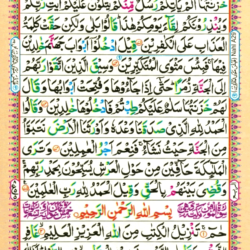 خَزَنَتُهَآ اَلَمْ يَاْتِكُمْ رُسُلٌ مِّنْكُمْ يَتْلُوْنَ عَلَيْكُمْ اٰيٰتِ رَبِّكُمْ
وَيُنْذِرُوْنَكُمْ لِقَآءَ يَوْمِكُمْ هٰذَا ؕ قَالُوْا بَلٰى وَلٰكِنْ حَقَّتْ كَلِمَةُ
الْعَذَابِ عَلَى الْكٰفِرِيْنَ قِيْلَ ادْخُلُوْٓا اَبْوَابَ جَهَنَّمَ خٰلِدِيْنَ
فِيْهَا ۚ فَبِئْسَ مَثْوَى الْمُتَكَبِّرِيْنَ وَسِيْقَ الَّذِيْنَ اتَّقَوْا رَبَّهُمْ
اِلَى الْجَنَّةِ زُمَرًا ؕ حَتّٰٓى اِذَا جَآءُوْهَا وَفُتِحَتْ اَبْوَابُهَا وَقَالَ
لَهُمْ خَزَنَتُهَا سَلٰمٌ عَلَيْكُمْ طِبْتُمْ فَادْخُلُوْهَا خٰلِدِيْنَ وَقَالُوا
الْحَمْدُ لِلّٰهِ الَّذِيْ صَدَقَنَا وَعْدَهٗ وَاَوْرَثَنَا الْاَرْضَ نَتَبَوَّاُ
مِنَ الْجَنَّةِ حَيْثُ نَشَآءُ ۚ فَنِعْمَ اَجْرُ الْعٰمِلِيْنَ وَتَرَى
الْمَلٰٓئِكَةَ حَآفِّيْنَ مِنْ حَوْلِ الْعَرْشِ يُسَبِّحُوْنَ بِحَمْدِ رَبِّهِمْ ۚ
وَقُضِيَ بَيْنَهُمْ بِالْحَقِّ وَقِيْلَ الْحَمْدُ لِلّٰهِ رَبِّ الْعٰلَمِيْنَ
بِسْمِ اللّٰهِ الرَّحْمٰنِ الرَّحِيْمِ
حٰمٓ تَنْزِيْلُ الْكِتٰبِ مِنَ اللّٰهِ الْعَزِيْزِ الْعَلِيْمِ غَافِرِ